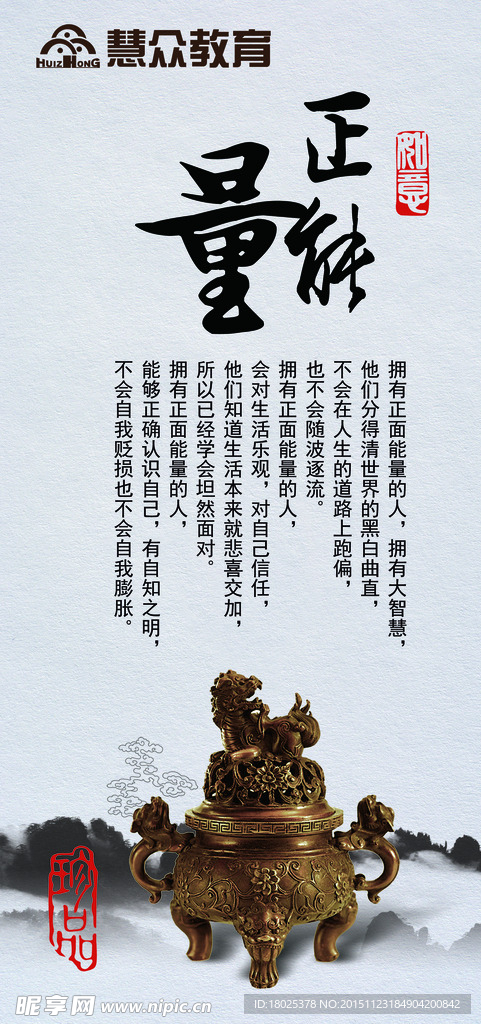 HUIZHONG 慧众教育
正能量
如意
拥有正面能量的人，拥有大智慧，
他们分得清世界的黑白曲直，
不会在人生的道路上跑偏，
也不会随波逐流。
拥有正面能量的人，
会对生活乐观，对自己信任，
他们知道生活本来就悲喜交加，
所以已经学会坦然面对。
拥有正面能量的人，
能够正确认识自己，有自知之明，
不会自我贬损也不会自我膨胀。
珍品
昵享网 www.nipic.cn
ID:18025378 NO:20151123184904200842